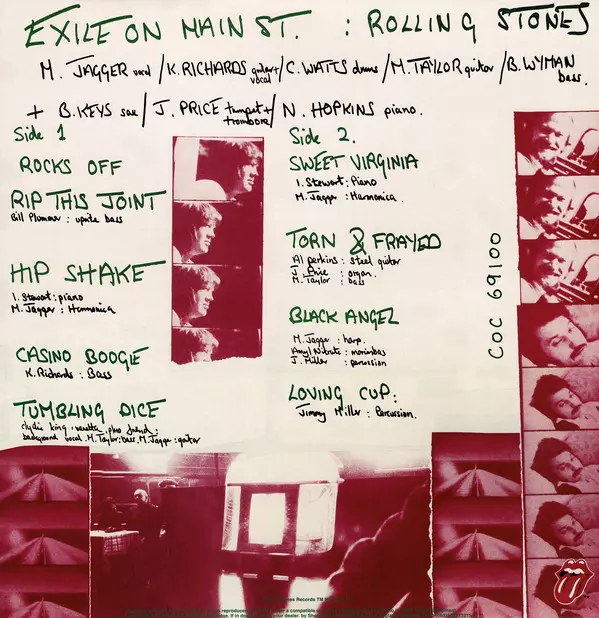 EXILE ON MAIN ST. : ROLLING STONES
M. JAGGER vocal / K. RICHARDS guitar + vocal / C. WATTS drums / M. TAYLOR guitar / B. WYMAN bass.
+ B. KEYS sax / J. PRICE trumpet + trombone / N. HOPKINS piano.
Side 1
ROCKS OFF
RIP THIS JOINT
Bill Plummer : uprite bass
HIP SHAKE
I. Stewart : piano
M. Jagger : Harmonica
CASINO BOOGIE
K. Richards : Bass
TUMBLING DICE
clydie king, vanetta, plus friend :
background vocal. M. Taylor : bass, M. Jagger : guitar
Side 2.
SWEET VIRGINIA
I. Stewart : Piano
M. Jagger : Harmonica
TORN & FRAYED
Al perkins : steel guitar
J. Price : organ.
M. Taylor : bass
BLACK ANGEL
M. Jagger : harp.
Amyl Nitrate : marimbas
J. Miller : percussion
LOVING CUP :
Jimmy Miller : Percussion.
COC 69100